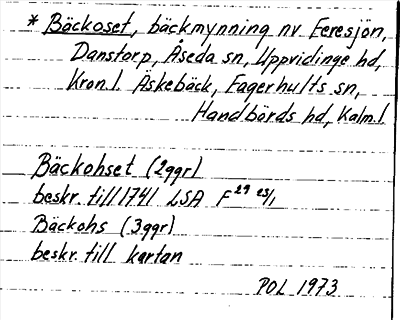 * Bäckoset, bäckmynning nv Feresjön,
Danstorp, Åseda sn, Uppvidinge hd,
Kron.l. Äskebäck, Fagerhults sn,
Handbörds hd, Kalm.l.
Bäckohset (2ggr)
beskr. till 1741 LSA F 29 25/1
Bäckohs (3ggr)
beskr. till kartan
POL 1973